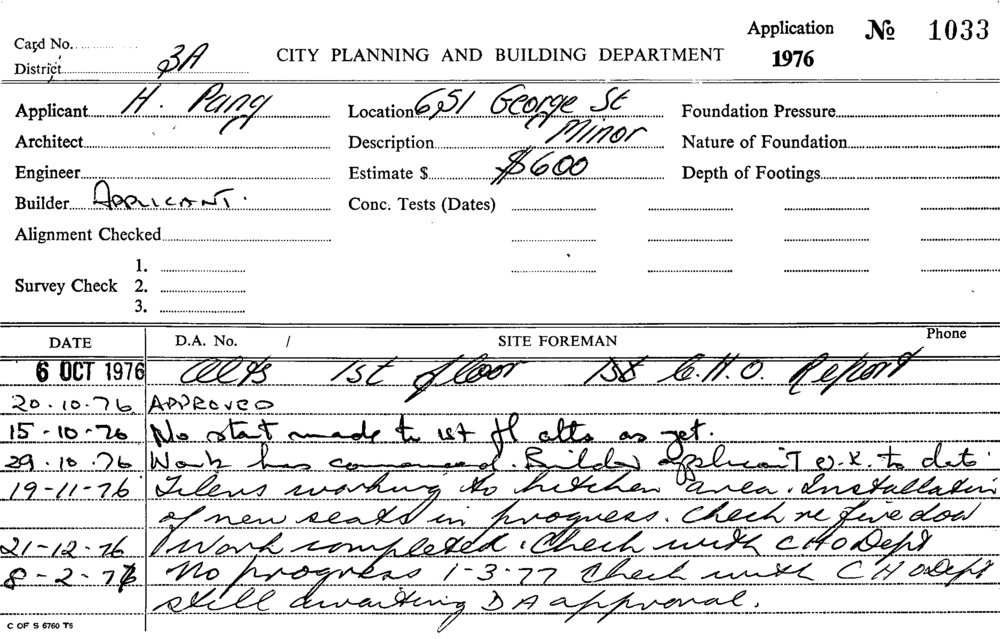 Application № 1033
Card No.
CITY PLANNING AND BUILDING DEPARTMENT 1976
District 3A
Applicant H. Pang Location 651 George St Foundation Pressure
Architect Description Minor Nature of Foundation
Engineer Estimate $ $600 Depth of Footings
Builder APPLICANT. Conc. Tests (Dates)
Alignment Checked
1.
Survey Check 2.
3.
DATE D.A. No. / SITE FOREMAN Phone
6 OCT 1976 Alts 1st floor C.H.O. Report
20.10.76 APPROVED
15-10-76 No start made to 1st fl alts as yet.
29.10.76 Work has commenced. Builder applicant O.K. to date
19-11-76 Tilers working to kitchen area. Installation
of new seats in progress. Check re fire door
21-12-76 Work completed. Check with CHO Dept
8-2-77 No progress 1-3-77 Check with CHO Dept
still awaiting DA approval.
C OF S 6760 T6